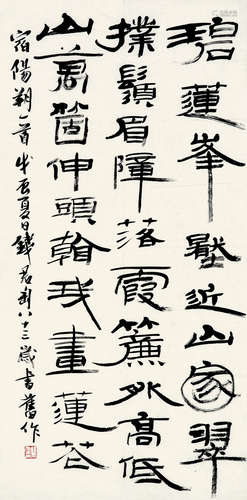 碧蓮峯壓近山家翠
撲鬚眉障落霞簾外高低
山萬箇伸頭我畫蓮花
宿陽朔一首戊辰夏日錢君匋八十三歲書舊作